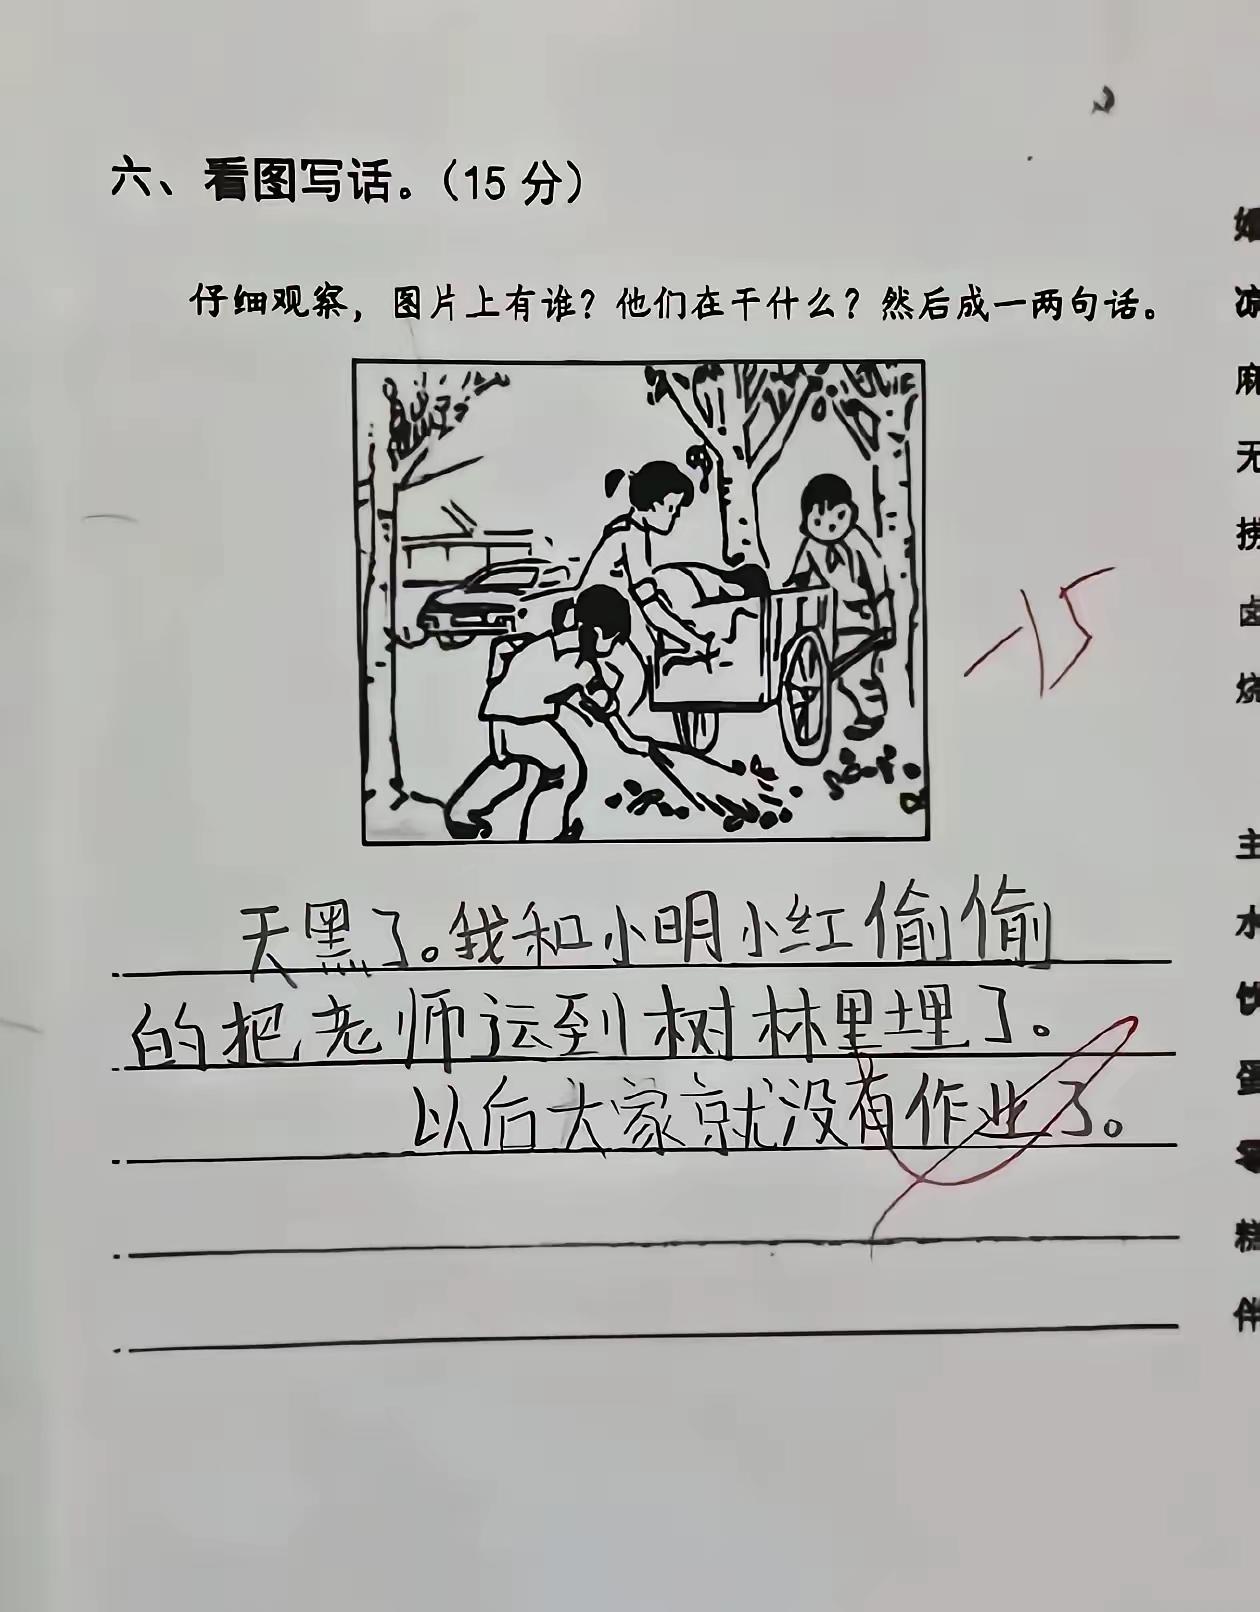 六、看图写话。（15 分）
仔细观察，图片上有谁？他们在干什么？然后成一两句话。
-15
天黑了。我和小明小红偷偷
的把老师运到树林里埋了。
以后大家就没有作业了。
麻
无
捞
卤
烧
主
水
饮
蛋
零
糕
伴